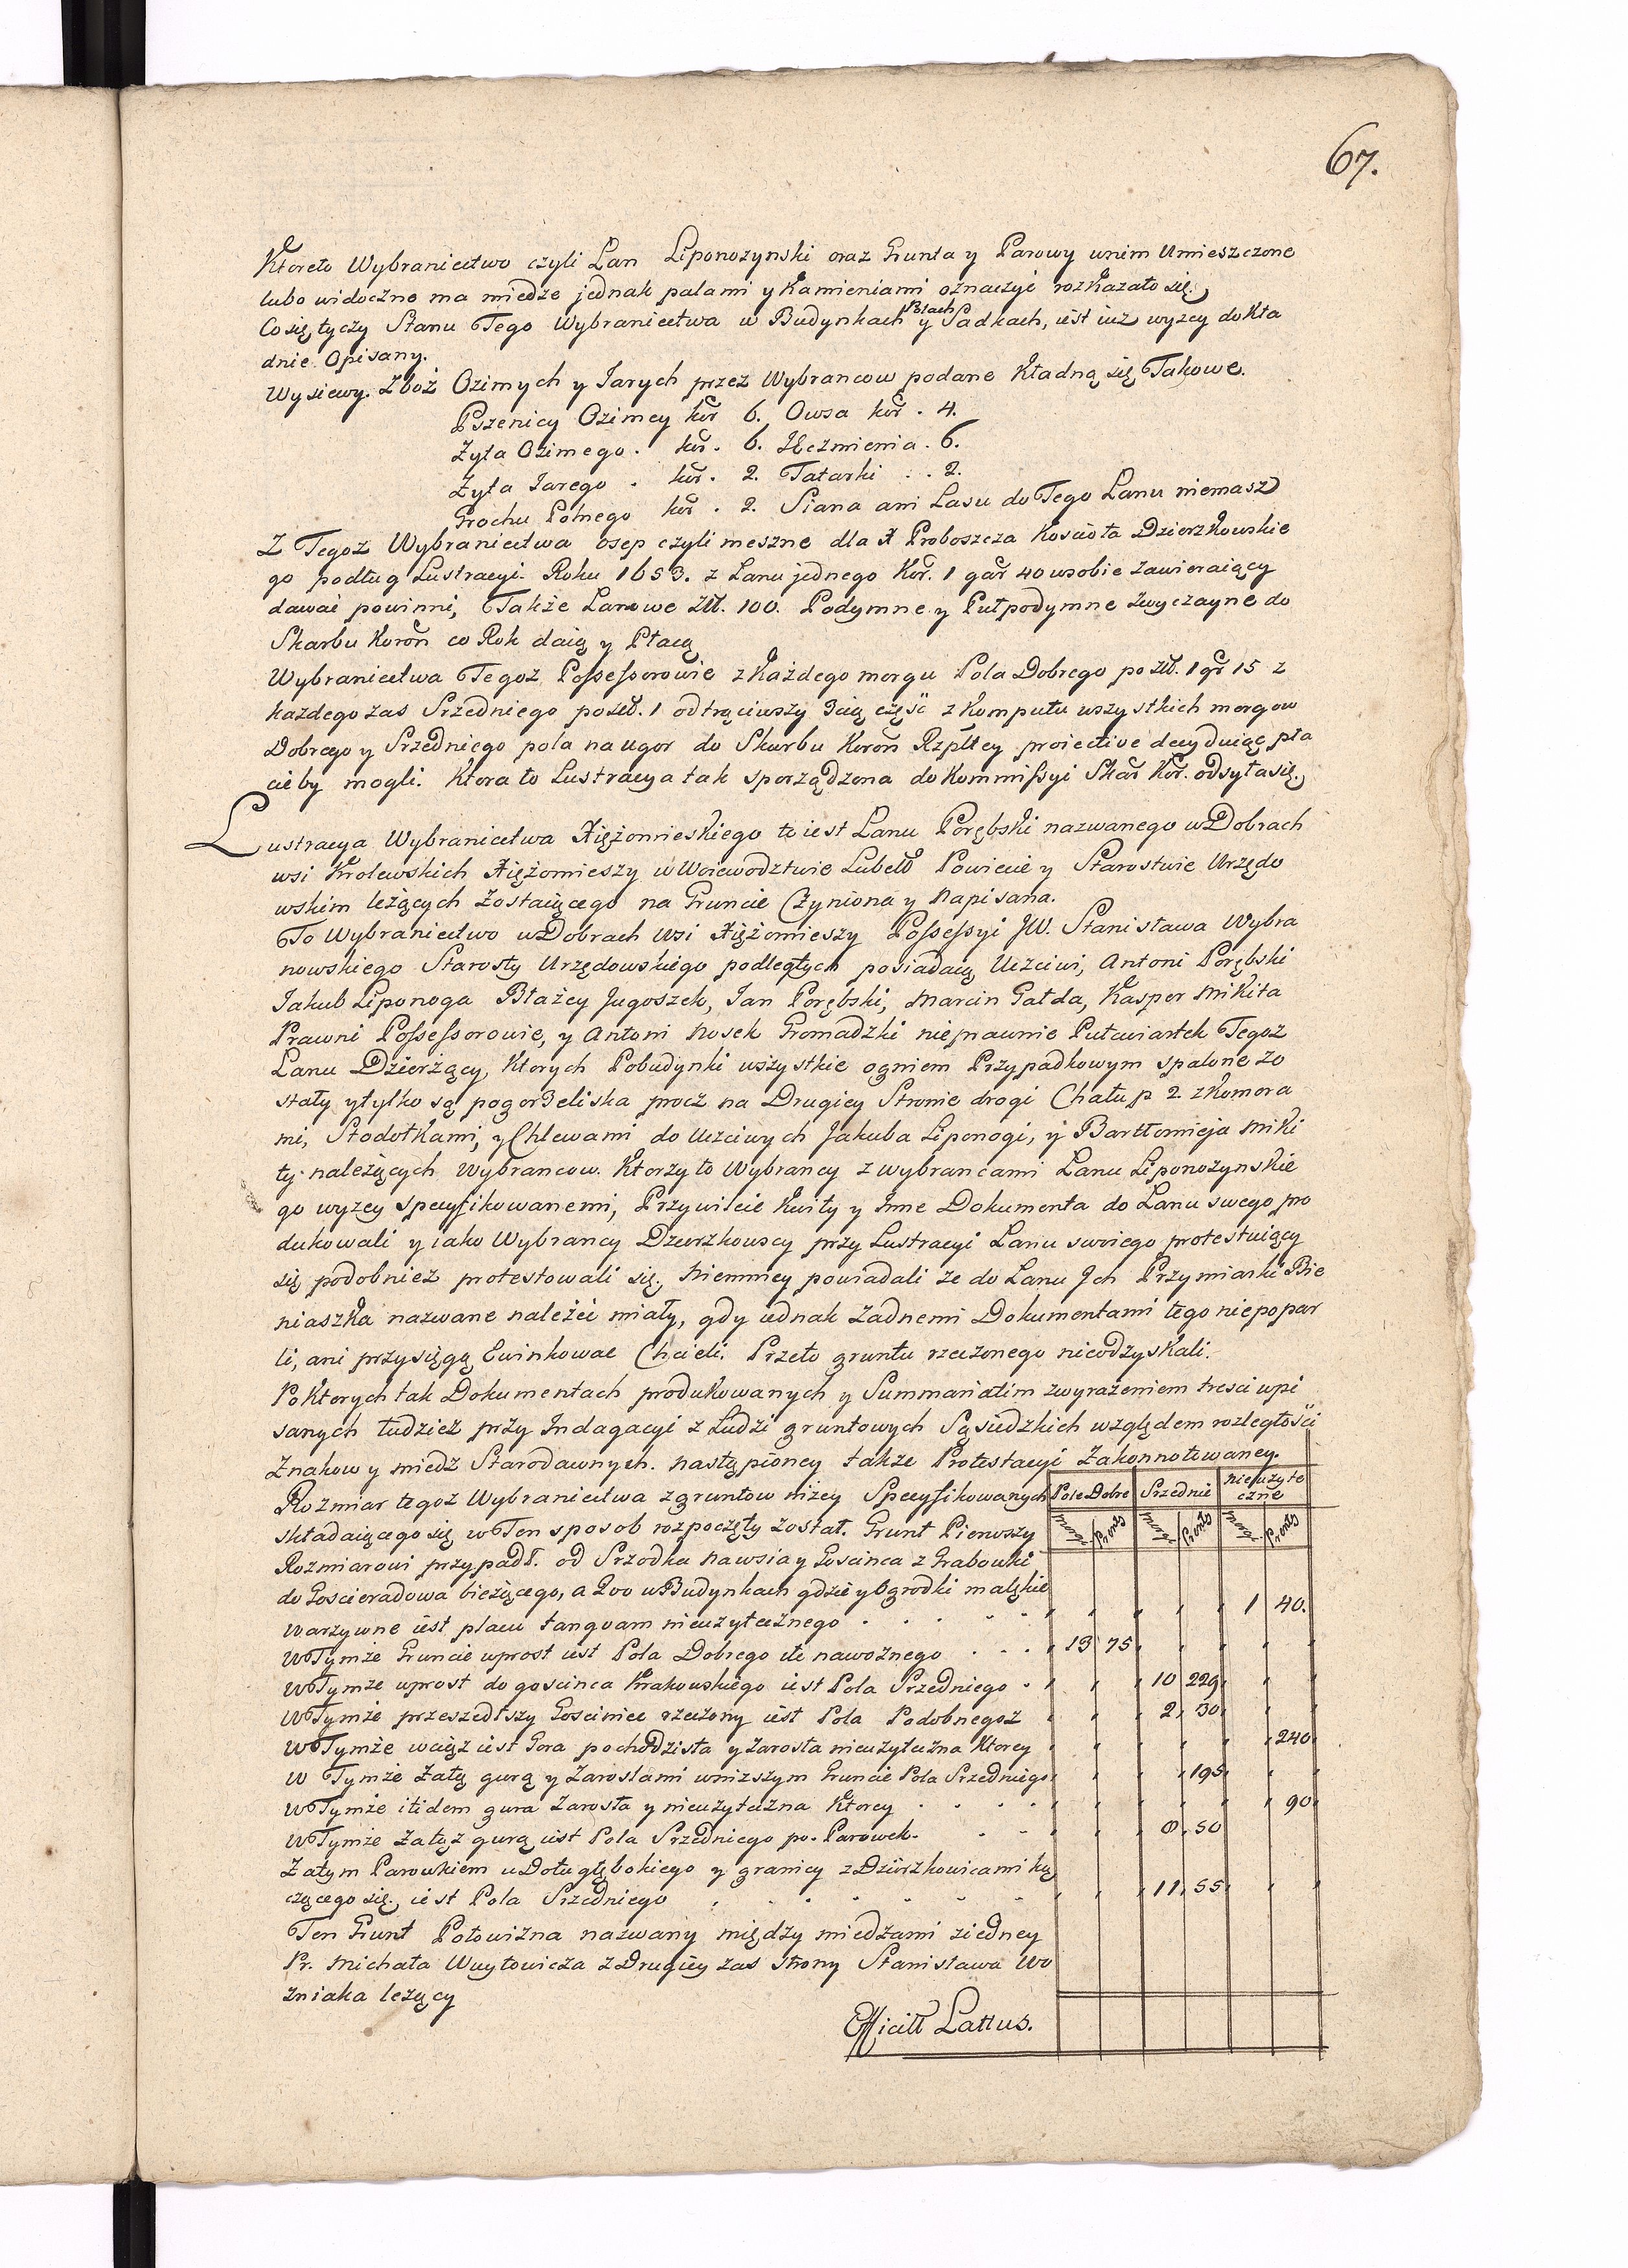 67.
Ktoreto Wybraniectwo czyli Łan Liponozynski oraz Grunta y Parowy wnim Umieszczone
lubo widoczne ma miedze jednak palami y Kamieniami oznaczyć rozkazało się.
Co się tyczy Stanu Tego Wybraniectwa w Budynkach Polach y Sadkach, iest iuż wyzey dokła
dnie Opisany.
Wysiewy Zboż Ozimych y Iarych przez Wybrancow podane Kładną się Takowe.
Pszenicy Ozimey kor̃ 6. Owsa kor̃. 4.
Zyta Ozimego. kor̃. 6. Ięczmienia. 6.
Zyta Iarego. kor̃. 2. Tatarki . . 2.
Grochu Polnego kor̃. 2. Siana ani Lasu do Tego Łanu niemasz
Z Tegoz Wybraniectwa osep czyli meszne dla X Proboszcza Koscioła Dzierzkowskie
go podług Lustracyi Roku 1653. z Łanu jednego Kor̃. 1 gar̃ 40 wsobie zawieraiący
dawać powinni, Także Łanowe Złł. 100. Podymne y Pułpodymne zwyczayne do
Skarbu Koroñ co Rok daią y Płacą
Wybraniectwa Tegoz Possessorowie z Każdego morgu Pola Dobrego po Złł. 1 gr 15 z
kazdego zas Srzedniego po Złł. 1 odtrąciwszy 3cią część z Komputu wszystkich morgow
Dobrego y Srzedniego pola na Ugor do Skarbu Koroñ Rzpltey proiective decyduiąc pła
cić by mogli. Ktora to Lustracya tak sporządzona do Kommissyi Skar̃ Kor̃. odsyła się.
Lustracya Wybraniectwa Xiężomieskiego to iest Łanu Porębski nazwanego w Dobrach
wsi Krolewskich Xiężomieszy w Woiewodztwie Lubelł Powiecie y Starostwie Urzędo
wskim leżących zostaiącego na Gruncie Czyniona y Napisana.
To Wybraniectwo w Dobrach Wsi Xiężomieszy Possessyi JW. Stanisława Wybra
nowskiego Starosty Urzędowskiego podległych posiadaią Uczciwi, Antoni Porębski
Iakub Liponoga Błażey Jugoszek, Ian Porębski, Marcin Gałda, Kasper Mikita
Prawni Possessorowie, y Antoni Nosek Gromadzki nieprawnie Pułcwiartek Tegoz
Łanu Dzierżący, Ktorych Pobudynki wszystkie ogniem Przypadkowym spalone zo
stały y tylko są pogorzeliska procz na Drugiey Stronie drogi Chałup 2 z Komora
mi, Stodołkami, y Chlewami do Uczciwych Jakuba Liponogi, y Bartłomieja Miki
ty należących Wybrancow. Ktorzy to Wybrancy z wybrancami Łanu Liponozynskie
go wyzey specyfikowanemi, Przywileie Kwity y Inne Dokumenta do Łanu swego pro
dukowali y iako Wybrancy Dzierzkowscy przy Lustracyi Łanu swoiego protestuiący
się podobniez protestowali się. Niemniey powiadali ze do Łanu Ich Przymiarki Bie
niaszka nazwane należeć miały, gdy iednak Zadnemi Dokumentami tego niepopar
li, ani przysięgą Ewinkować Chcieli. Przeto gruntu rzeczonego nieodzyskali.
Po Ktorych tak Dokumentach produkowanych y Summariatim zwyrażeniem tresci wpi
sanych tudzież przy Indagacyi z Ludzi gruntowych Sąsiedzkich względem rozległości
Znakow y miedz Starodawnych. nastąpioney takze Protestacyi Zakonnotowaney.
Rozmiar tegoz Wybraniectwa z gruntow niżey Specyfikowanych Pole Dobre Srzednie nieużyte
czne
składaiącego się w Ten sposob rozpoczęty został. Grunt Pierwszy Morg: Pręty Morg: Pręty Morg: Pręty
Rozmiarowi przypadł. od Srzodka nawsia y Goscinca z Grabowki
do Goscieradowa bieżącego, a quo w Budynkach gdzie y Ogrodki maleńkie
warzywne iest placu tanquam nieużytecznego . . . 1 40.
W Tymże Gruncie wprost iest Pola Dobrego ile nawoznego . . . 13 75
W Tymże wprost do goscinca Krakowskiego iest Pola Srzedniego . 10 229
W Tymże przeszedłszy Gosciniec rzeczony iest Pola Podobnegoz 2 30
W Tymże wciąz iest Gora pochodzista y Zarosła nieużyteczna Ktorey 240
W Tymże Zatą gurą y Zaroslami wniższym Gruncie Pola Srzedniego 195
W Tymże itidem gura Zarosła y nieużyteczna Ktorey . . . . 90
W Tymże Zatąż gurą iest Pola Srzedniego po Parowek. . . 8 50
Zatym Parowkiem u Dołu głębokiego y granicy z Dzierzkowicami koń
czącego się iest Pola Srzedniego . . . 11 55
Ten Grunt Połowizna nazwany między miedzami ziedney
Pr. Michała Woytowicza z Drugiey zas Strony Stanisława Wo
zniaka lezący
Efficitt Lattus.